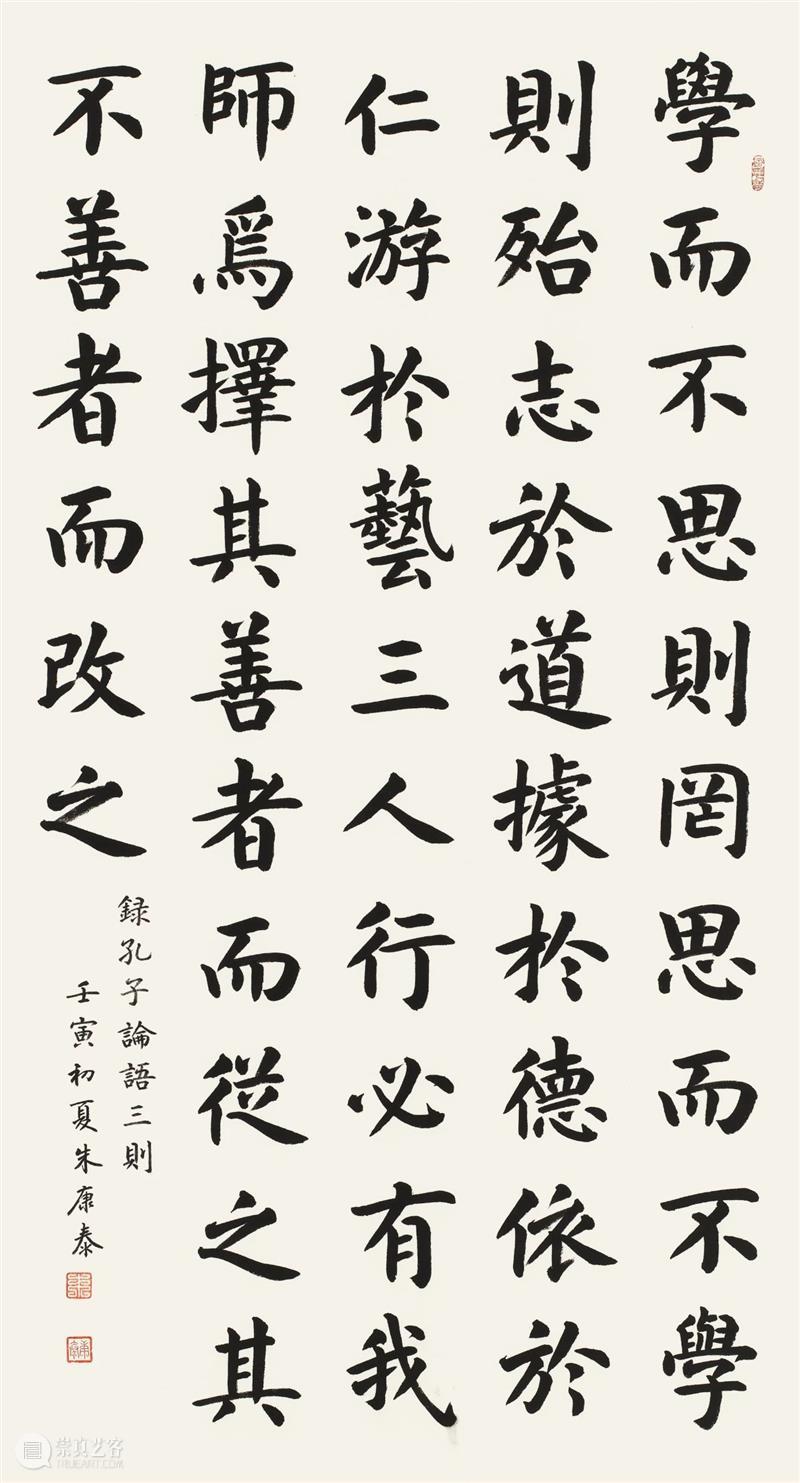 學而不思則罔思而不學
則殆志於道據於德依於
仁游於藝三人行必有我
師焉擇其善者而從之其
不善者而改之
録孔子論語三則
壬寅初夏朱康泰
崇真艺客
WWW.TRUEART.COM